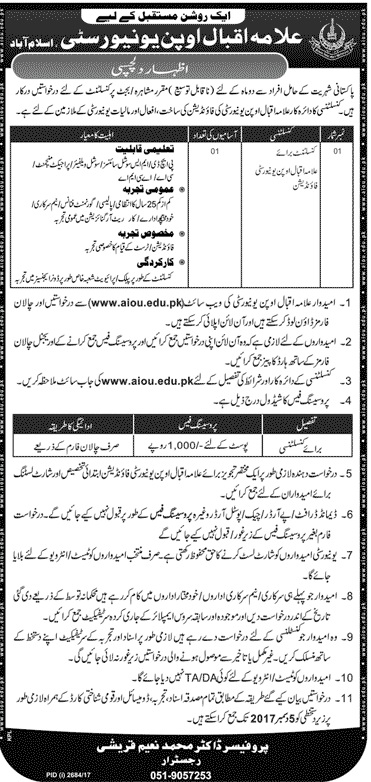 ایک روشن مستقبل کے لیے
علامہ اقبال اوپن یونیورسٹی۔ اسلام آباد
اظہار دلچسپی
پاکستانی شہریت کے حامل افراد سے دو ماہ کے لئے (ناقابل توسیع) مقرر مشاہرہ/بجٹ پر کنسلٹنٹ کے لئے درخواستیں درکار
ہیں۔ کنسلٹنسی کا دائرہ کار علامہ اقبال اوپن یونیورسٹی کی فاؤنڈیشن کی ساخت، افعال اور مالیات یونیورسٹی کے ملازمین کے لئے ہے۔
نمبر شمار
کنسلٹنسی
آسامیوں کی تعداد
اہلیت کا معیار
01
کنسلٹنٹ برائے
علامہ اقبال اوپن یونیورسٹی
فاؤنڈیشن
01
تعلیمی قابلیت
پی ایچ ڈی/ایم ایس سوشل سائنسز/سوشل ویلفیئر/پراجیکٹ مینجمنٹ/
سی اے/اے سی ایم اے
عمومی تجربہ
کم از کم 25 سال کا انتظامی/پالیسی/گورنمنٹ فنانس ایم سرکاری/
خودمختار ادارے/کارپوریٹ آرگنائزیشن میں عمومی تجربہ
مخصوص تجربہ
فاؤنڈیشن/ٹرسٹ کے قیام کا خصوصی تجربہ
کارکردگی
کنسلٹنٹ کے طور پر پبلک/پرائیویٹ شعبہ خاص طور پر ڈونر ایجنسیز میں تجربہ
1۔ امیدوار علامہ اقبال اوپن یونیورسٹی کی ویب سائٹ (www.aiou.edu.pk) سے درخواستیں اور چالان
فارمز ڈاؤن لوڈ کر سکتے ہیں اور آن لائن اپلائی کر سکتے ہیں۔
2۔ امیدواروں کے لئے لازمی ہے کہ وہ آن لائن اپنی درخواستیں جمع کرائیں اور پروسیسنگ فیس جمع کرانے کے اور یجنل چالان
فارمز کے ساتھ ہارڈ کاپیز جمع کرائیں۔
3۔ کنسلٹنسی کے دائرہ کار اور شرائط کی تفصیل کے لئے www.aiou.edu.pk کی جاب سائٹ ملاحظہ کریں۔
4۔ پروسیسنگ فیس کا شیڈول درج ذیل ہے۔
تفصیل
پروسیسنگ فیس
ادائیگی کا طریقہ
برائے کنسلٹنسی
پوسٹ کے لئے -/1,000 روپے
صرف چالان فارم کے ذریعے
5۔ درخواست دہندہ لازمی طور پر ایک مختصر تجویز برائے علامہ اقبال اوپن یونیورسٹی فاؤنڈیشن ابتدائی تشخیص اور شارٹ لسٹنگ
برائے امیدواران کے لئے جمع کرائیں۔
6۔ ڈیمانڈ ڈرافٹ/پے آرڈر/چیک/پوسٹل آرڈر وغیرہ پروسیسنگ فیس کے طور پر قبول نہیں کیے جائیں گے۔ درخواست
فارم بغیر پروسیسنگ فیس کے زیر غور/قبول نہیں کیے جائیں گے
7۔ یونیورسٹی امیدواروں کو شارٹ لسٹ کرنے کا حق محفوظ رکھتی ہے۔ صرف منتخب امیدواروں کو ٹیسٹ/انٹرویو کے لئے بلایا
جائے گا۔
8۔ امیدوار جو پہلے ہی سرکاری/نیم سرکاری اداروں/خود مختار اداروں میں کام کر رہے ہیں محکمانہ توسط کے ذریعے دی گئی
تاریخ کے اندر درخواست دیں اور موجودہ اور سابقہ سروس ایمپلائر کے جاری کردہ سرٹیفکیٹ جمع کرائیں۔
9۔ وہ امیدوار جو کنسلٹنسی کے لئے درخواست دے رہے ہیں لازمی طور پر اسناد اور تجربہ کے سرٹیفکیٹ اپنے دستخط کے
ساتھ منسلک کریں۔ غیر مکمل یا تاخیر سے موصول ہونے والی درخواستیں زیر غور نہ لائی جائیں گی۔
10۔ امیدواروں کو ٹیسٹ/انٹرویو کے لئے کوئی TA/DA نہیں دیا جائے گا۔
11۔ درخواستیں بیان کیے گئے طریقہ کے مطابق تمام مصدقہ اسناد، تجربہ، ڈومیسائل اور قومی شناختی کارڈ کے ہمراہ لازمی طور
پر زیر دستخطی کو 5 دسمبر 2017 تک جمع کرا سکتے ہیں۔
پروفیسر ڈاکٹر محمد نعیم قریشی
رجسٹرار
051-9057253
PID (i) 2684/17